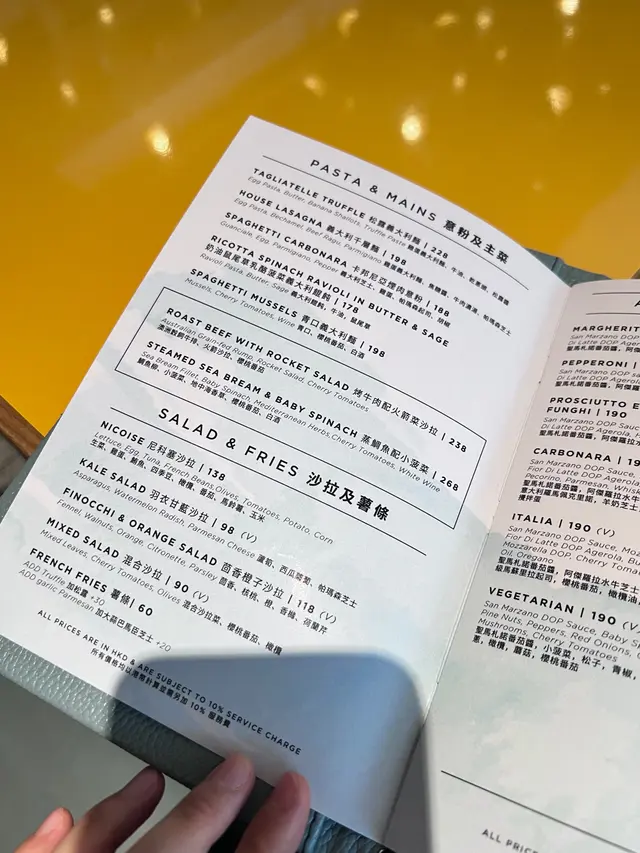 PASTA & MAINS 意粉及主菜
TAGLIATELLE TRUFFLE 松露義大利麵 | 228
Egg Pasta, Butter, Banana Shallots, Truffle Paste 雞蛋義大利麵, 牛油, 乾蔥頭, 松露醬
HOUSE LASAGNA 義大利千層麵 | 198
Egg Pasta, Bechamel, Beef Ragu, Parmigiano
SPAGHETTI CARBONARA 卡邦尼亞煙肉意粉 | 188
Guanciale, Egg, Parmigiano, Pepper
RICOTTA SPINACH RAVIOLI IN BUTTER & SAGE
奶油鼠尾草乳酪菠菜義大利餛飩 | 178
Ravioli Pasta, Butter, Sage 義大利餛飩, 牛油, 鼠尾草
SPAGHETTI MUSSELS 青口義大利麵 | 198
Mussels, Cherry Tomatoes, Wine 青口, 櫻桃番茄, 白酒
ROAST BEEF WITH ROCKET SALAD 烤牛肉配火箭菜沙拉 | 238
Australian Grain-fed Rump, Rocket Salad, Cherry Tomatoes
澳洲穀飼牛排, 火箭沙拉, 櫻桃番茄
STEAMED SEA BREAM & BABY SPINACH 蒸鯛魚配小菠菜 | 268
Sea Bream Fillet, Baby Spinach, Mediterranean Herbs, Cherry Tomatoes, White Wine
鯛魚柳, 小菠菜, 地中海香草, 櫻桃番茄, 白酒
SALAD & FRIES 沙拉及薯條
NICOISE 尼科塞沙拉 | 138
Lettuce, Egg, Tuna, French Beans, Olives, Tomatoes, Potato, Corn
生菜, 雞蛋, 鮪魚, 四季豆, 橄欖, 番茄, 馬鈴薯, 玉米
KALE SALAD 羽衣甘藍沙拉 | 98 (V)
Asparagus, Watermelon Radish, Parmesan Cheese 蘆筍, 西瓜蘿蔔, 帕瑪森芝士
FINOCCHI & ORANGE SALAD 茴香橙子沙拉 | 118 (V)
Fennel, Walnuts, Orange, Citronette, Parsley 茴香, 核桃, 橙, 香檸, 荷蘭芹
MIXED SALAD 混合沙拉 | 90 (V)
Mixed Leaves, Cherry Tomatoes, Olives 混合沙拉菜, 櫻桃番茄, 橄欖
FRENCH FRIES 薯條 | 60
ADD Truffle 加松露 +30
ADD garlic Parmesan 加大蒜巴馬臣芝士 +20
ALL PRICES ARE IN HKD & ARE SUBJECT TO 10% SERVICE CHARGE
所有價格均以港幣計算並需另加 10% 服務費
MARGHERIT
San Marzano DOP
Di Latte DOP Agero
聖馬札諾番茄醬, 阿
PEPPERONI |
San Marzano DOP sa
Di Latte DOP Agerola
聖馬札諾番茄醬, 阿傑羅
PROSCIUTTO E
FUNGHI | 190
San Marzano DOP Sauce,
Di Latte DOP Agerola
聖馬札諾番茄醬, 阿傑羅
CARBONARA | 19
San Marzano DOP Sauce,
Fior Di Latte DOP Agerola
Pecorino, Parmesan, White
聖馬札諾番茄醬, 阿傑羅拉水
ITALIA | 190 (V)
San Marzano DOP Sauce, Mo
Fior Di Latte DOP Agerola, Bu
Mozzarella DOP, Cherry Toma
Oil, Oregano
聖馬札諾番茄醬, 阿傑羅拉水牛芝士
VEGETARIAN | 190 (V)
San Marzano DOP Sauce, Baby Sp
Pine Nuts, Peppers, Red Onions,
Mushrooms, Cherry Tomatoes
聖馬札諾番茄醬, 小菠菜, 松子, 青椒,
蔥, 橄欖, 蘑菇, 櫻桃番茄
ALL PRIC